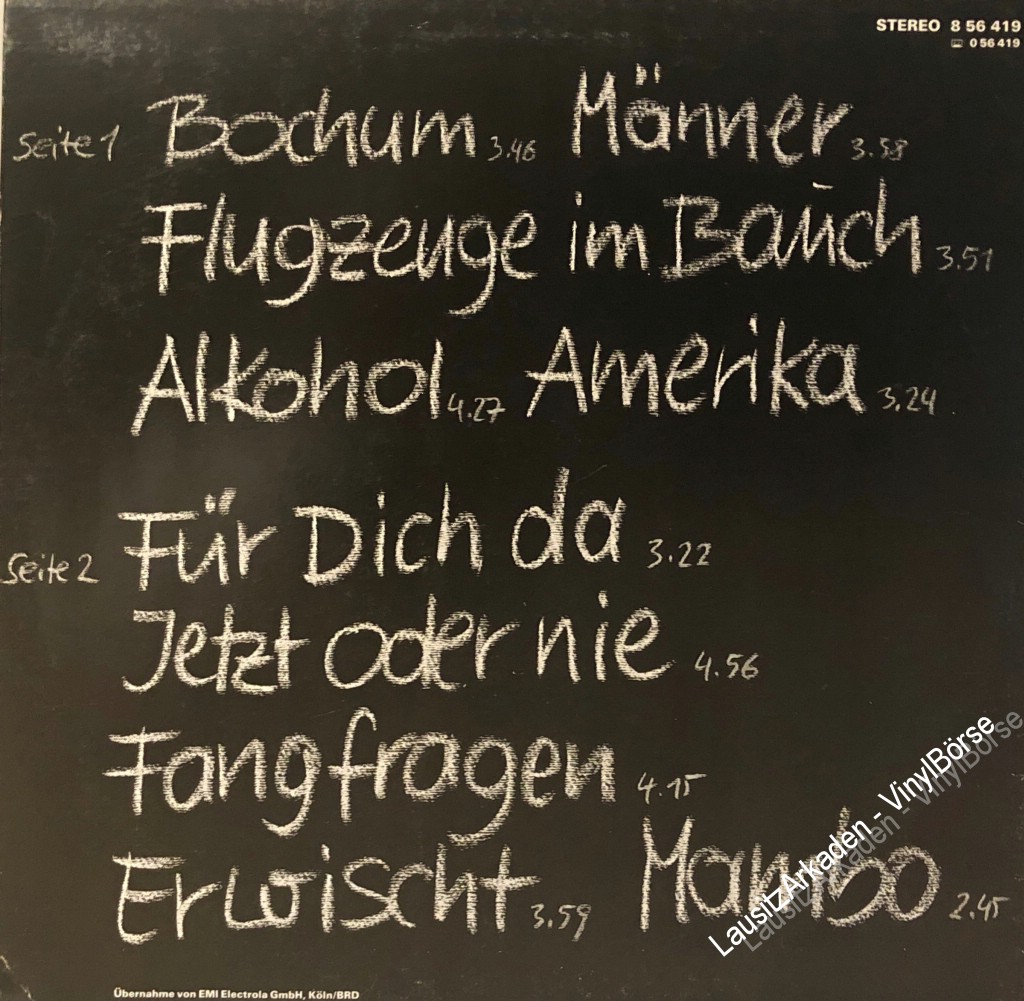 STEREO 8 56 419
0 56 419
Seite 1 Bochum 3.46 Männer 3.58
Flugzeuge im Bauch 3.51
Alkohol 4.27 Amerika 3.24
Seite 2 Für Dich da 3.22
Jetzt oder nie 4.56
Fangfragen 4.15
Erwischt 3.59 Mambo 2.45
LausitzArkaden - VinylBörse
Übernahme von EMI Electrola GmbH, Köln/BRD